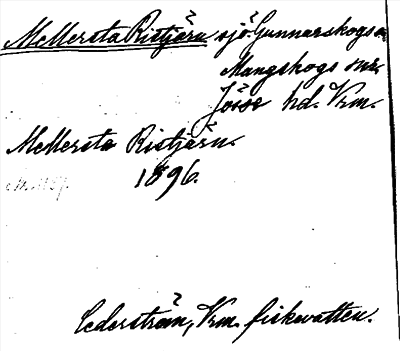 Mellersta Ristjärn sjö Gunnarskogs o.
Mangskogs snr.
Jösse hd. Vrm.
Mellersta Ristjärn.
1896.
Cederström, Vrm. fiskevatten.